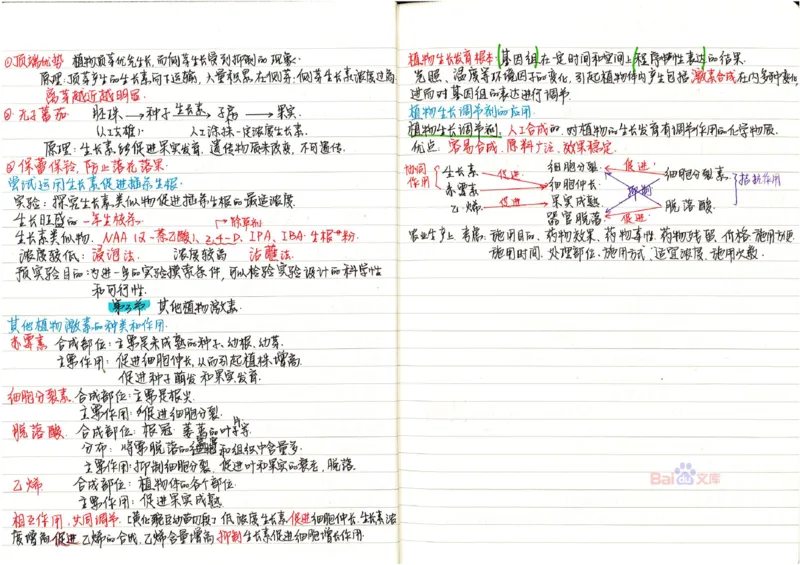 ①顶端优势 植物顶芽优先生长,而侧芽生长受到抑制的现象.
原理:顶芽产生的生长素向下运输,大量积累在侧芽:侧芽生长素浓度过高
离芽越近越明显.
②无子蕃茄. 胚珠→种子 生长素→子房→果实.
(人工去雄) 人工涂抹一定浓度生长素.
原理:生长素能够促进果实发育,遗传物质未改变,不可遗传.
③保蕾保铃,防止落花落果.
尝试运用生长素促进插条生根.
实验:探究生长素类似物促进插条生根的最适浓度
生长旺盛的一年生枝条. 除草剂
生长素类似物. NAA(α-萘乙酸)、2,4-D、IPA、IBA、生根粉
浓度较低:浸泡法. 浓度较高 沾蘸法.
预实验目的:为进一步的实验摸索条件,可以检验实验设计的科学性
和可行性.
第三节 其他植物激素.
其他植物激素的种类和作用.
赤霉素 合成部位:主要是未成熟的种子、幼根、幼芽.
主要作用:促进细胞伸长,从而引起植株增高
促进种子萌发和果实发育.
细胞分裂素 合成部位:主要是根尖.
主要作用:促进细胞分裂.
脱落酸 合成部位:根冠 萎蔫的叶片等.
分布:将要脱落的器官和组织中含量多.
主要作用:抑制细胞分裂,促进叶和果实的衰老,脱落.
乙烯 合成部位:植物体的各个部位.
主要作用:促进果实成熟.
相互作用,共同调节.【黄化豌豆幼苗切段】低浓度生长素促进细胞伸长,生长素浓
度增高促进乙烯的合成,乙烯含量增高,抑制生长素促进细胞增长作用.
植物生长发育根本:(基因组)在一定时间和空间上(程序性表达)的结果.
光照、温度等环境因子的变化,引起植物体内产生包括激素合成在内多种变化,
进而对基因组的表达进行调节.
植物生长调节剂的应用.
植物生长调节剂:人工合成的,对植物的生长发育有调节作用的化学物质.
优点:容易合成、原料广泛、效果稳定.
协同作用 生长素 促进 细胞分裂 促进 细胞分裂素 拮抗作用
赤霉素 细胞伸长 抑制
乙烯 促进 果实成熟 脱落酸
器官脱落 促进
农业生产上考虑:施用目的、药物效果、药物毒性、药物残留、价格、施用方便
施用时间、处理部位、施用方式、适宜浓度、施用次数.
Baidu文库